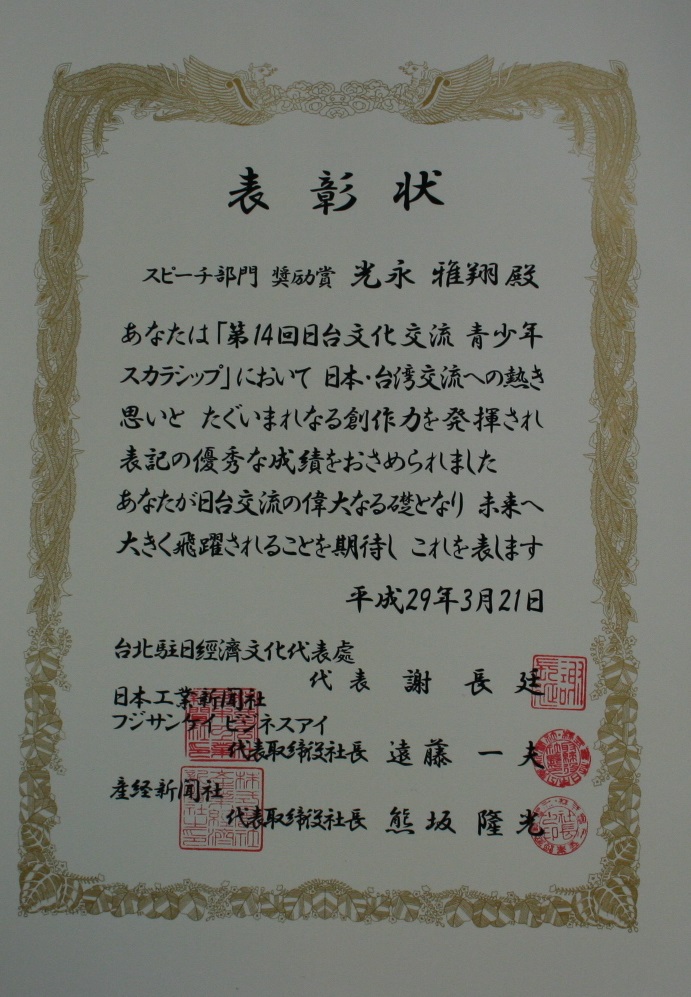 表彰状
スピーチ部門 奨励賞 光永 雅翔 殿
あなたは「第14回日台文化交流 青少年
スカラシップ」において 日本・台湾交流への熱き
思いと たぐいまれなる創作力を発揮され
表記の優秀な成績をおさめられました
あなたが日台交流の偉大なる礎となり 未来へ
大きく飛躍されることを期待し これを表します
平成29年3月21日
台北駐日經濟文化代表處
代表 謝 長 廷
日本工業新聞社
フジサンケイ ビジネスアイ
代表取締役社長 遠藤 一夫
産経新聞社
代表取締役社長 熊坂 隆光